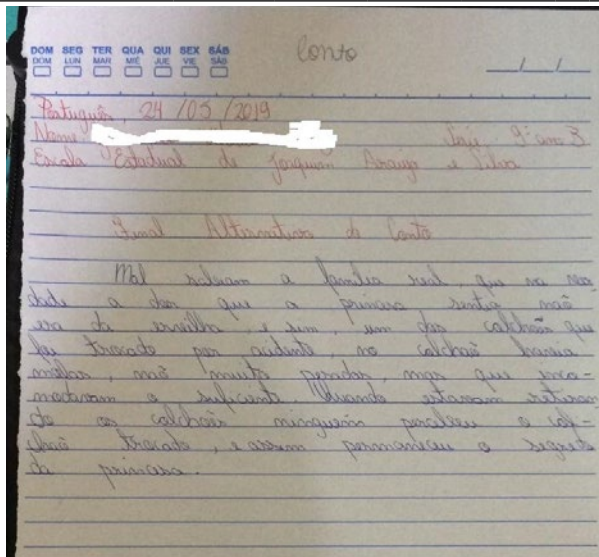 DOM SEG TER QUA QUI SEX SÁB
DOM LUN MAR MIÉ JUE VIE SÁB
Conto
Português, 24 / 05 / 2019
Nome
9º ano B
Escola Estadual de Joaquim Araujo e Silva
Final Alternativo do Conto
Mal sabiam a familia real, que na ver
dade a dor que a princesa sentia não
era da ervilha, e sim, um dos colchões que
foi trocado por acidente, no colchão havia
molas, não muito pesadas, mas que inco-
modavam o suficiente. Quando estavam retiran
do os colchões ninguém percebeu o col-
chão trocado, e assim permaneceu o segredo
da princesa.